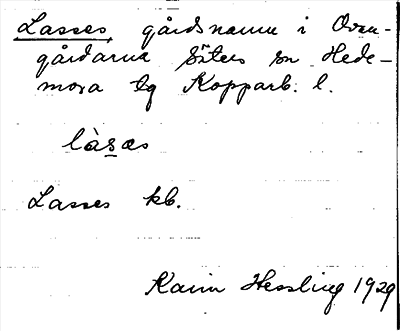 Lasses, gårdsnamn i Ovan-
gårdarna Säters sn Hede-
mora tg Kopparb. l.
làsæs
Lasses kb.
Karin Hessling 1929